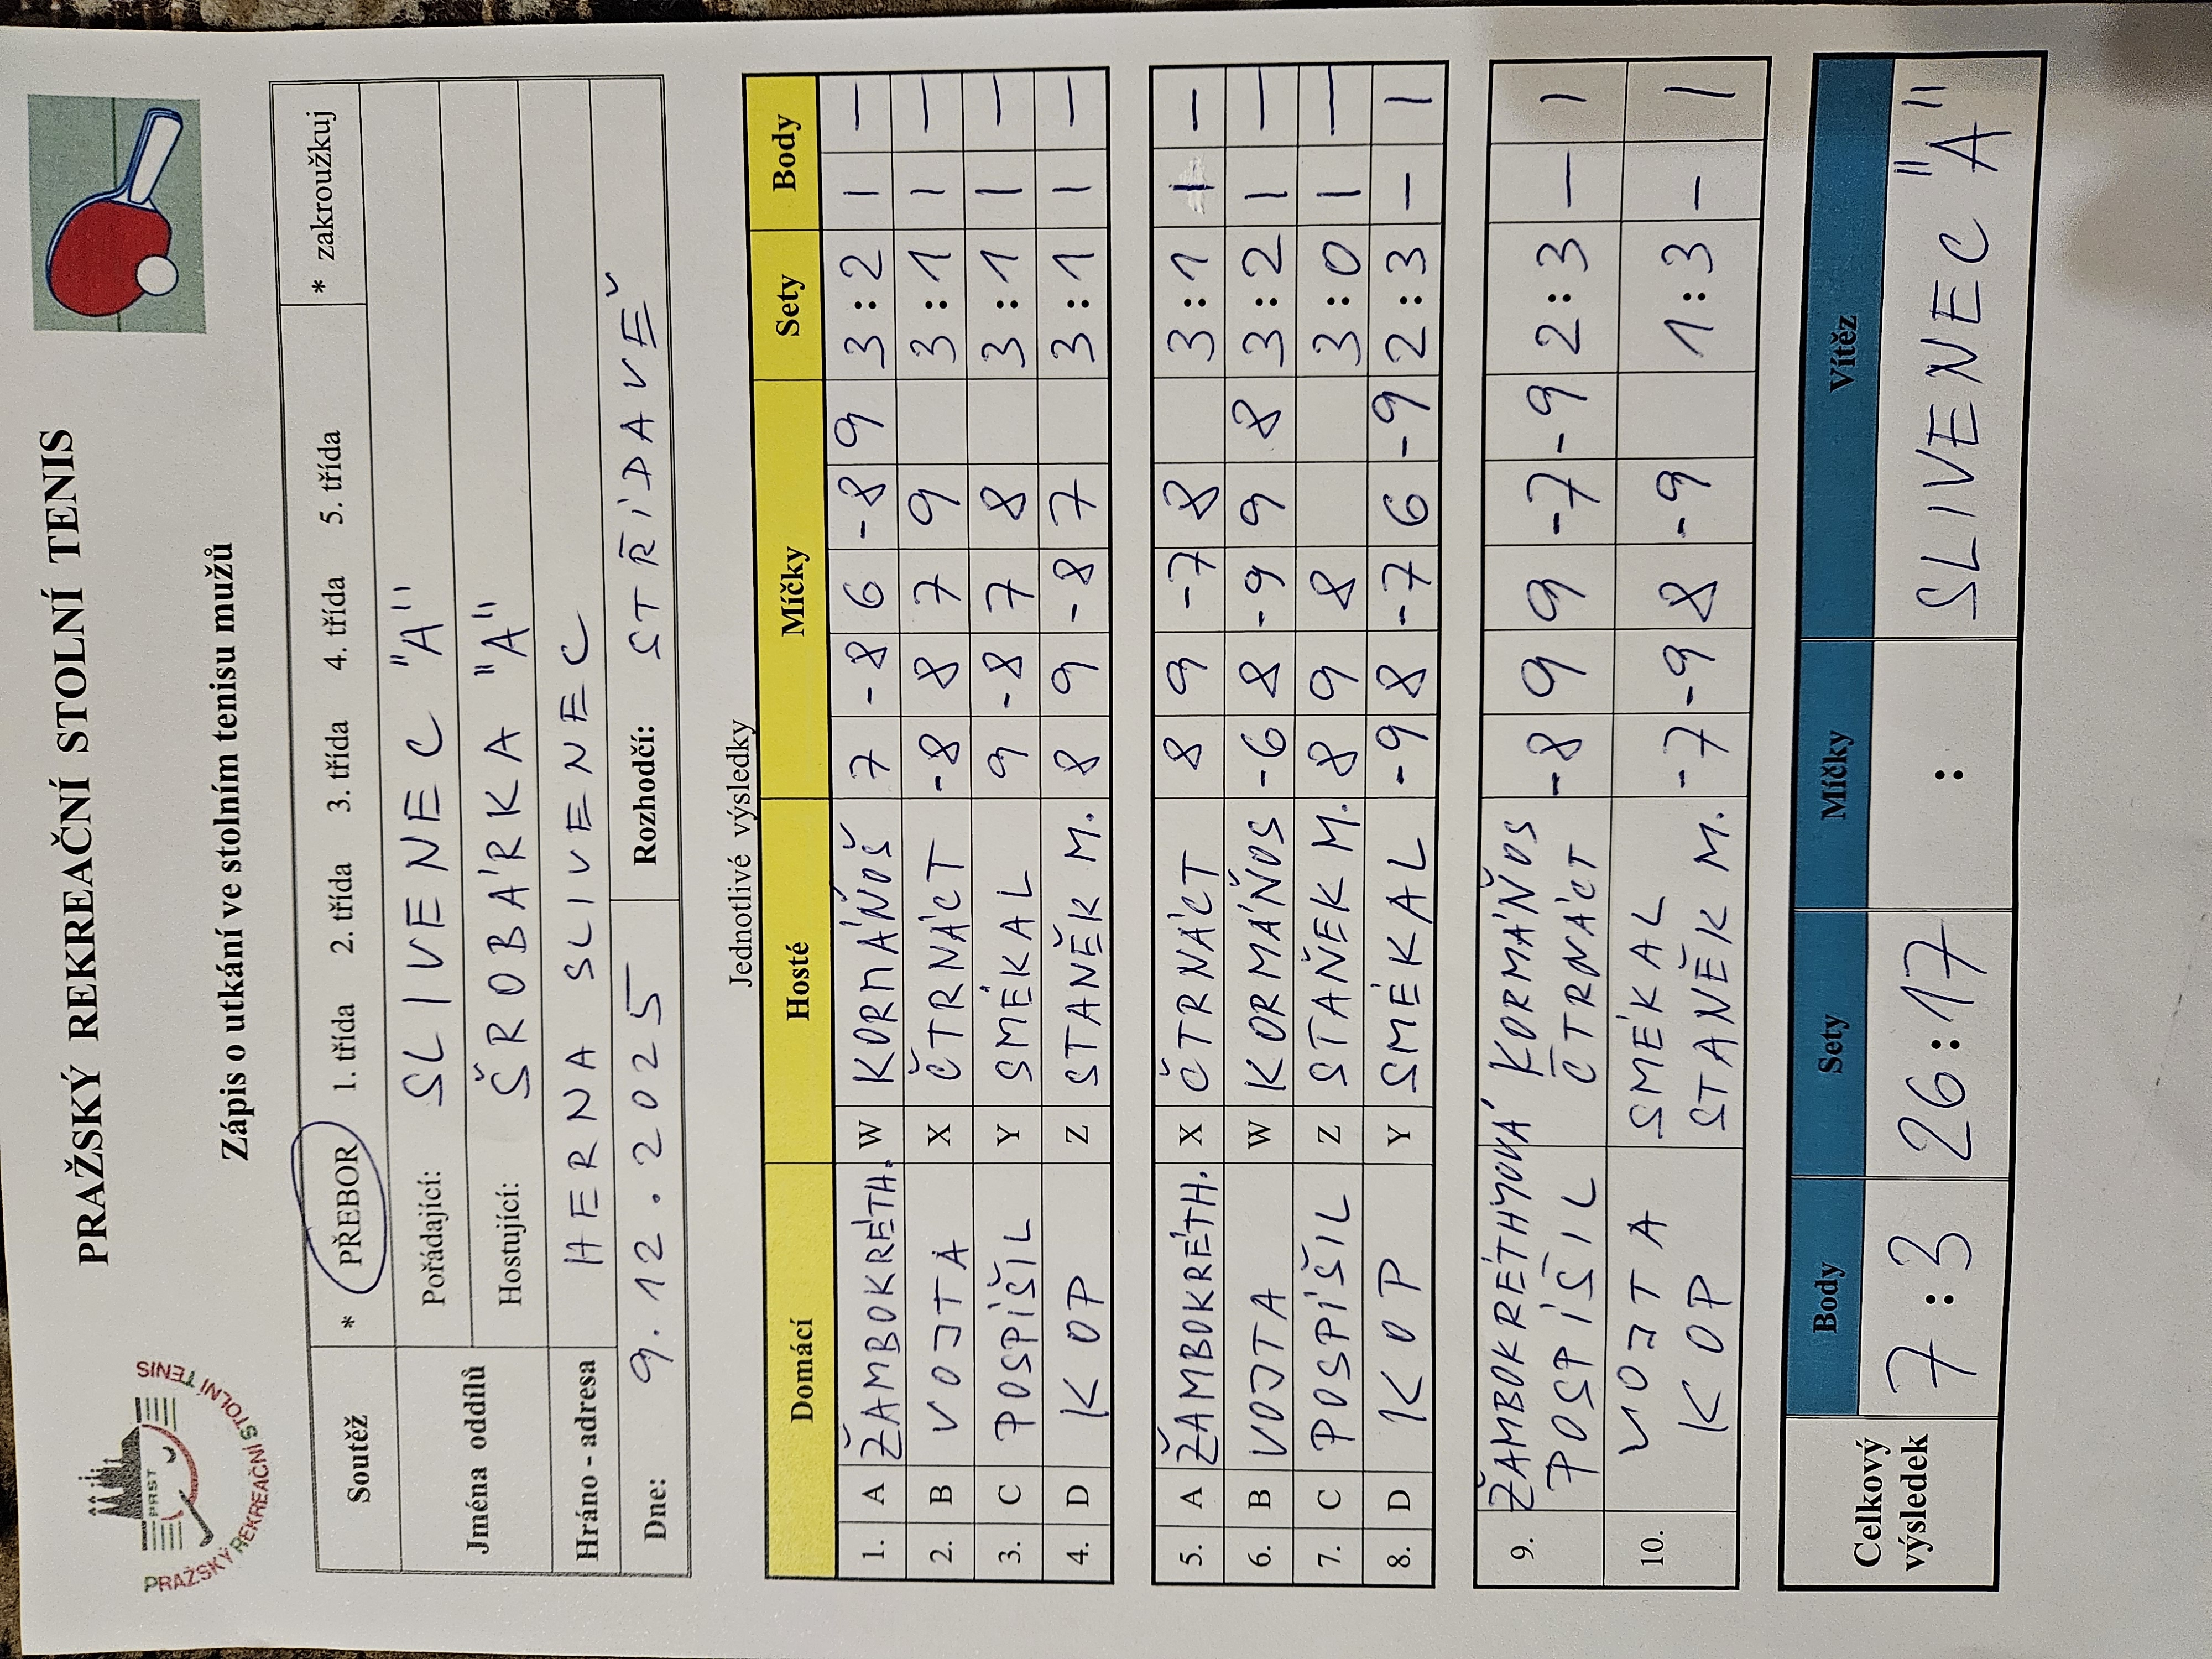 PRAŽSKÝ REKREAČNÍ STOLNÍ TENIS
PRST
PRAŽSKÝ REKREAČNÍ STOLNÍ TENIS
Zápis o utkání ve stolním tenisu mužů
Soutěž * PŘEBOR 1. třída 2. třída 3. třída 4. třída 5. třída * zakroužkuj
Jména oddílů Pořádající: SLIVENEC "A"
Hostující: ŠROBÁRKA "A"
Hráno - adresa HERNA SLIVENEC
Dne: 9.12.2025 Rozhodčí: STŘÍDAVĚ
Jednotlivé výsledky
Domácí Hosté Míčky Sety Body
1. A ŽAMBOKRÉTH. W KORMÁŇOŠ 7 -8 6 -8 9 3:2 1 —
2. B VOJTA X ČTRNÁCT -8 8 7 9 3:1 1 —
3. C POSPÍŠIL Y SMÉKAL 9 -8 7 8 3:1 1 —
4. D KOP Z STANĚK M. 8 9 -8 7 3:1 1 —
5. A ŽAMBOKRÉTH. X ČTRNÁCT 8 9 -7 8 3:1 1 —
6. B VOJTA W KORMÁŇOS -6 8 -9 9 8 3:2 1 —
7. C POSPÍŠIL Z STANĚK M. 8 9 8 3:0 1 —
8. D KOP Y SMÉKAL -9 8 -7 6 -9 2:3 — 1
9. ŽAMBOKRÉTHYOVÁ KORMÁŇOS -8 9 9 -7 -9 2:3 — 1
POSPÍŠIL ČTRNÁCT
10. VOJTA SMÉKAL -7 -9 8 -9 1:3 — 1
KOP STANĚK M.
Celkový výsledek Body Sety Míčky Vítěz
7:3 26:17 : SLIVENEC "A"